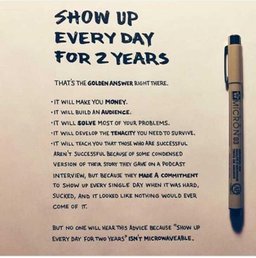 SHOW UP
EVERY DAY
FOR 2 YEARS
THAT'S THE GOLDEN ANSWER RIGHT THERE.
• IT WILL MAKE YOU MONEY.
• IT WILL BUILD AN AUDIENCE.
• IT WILL SOLVE MOST OF YOUR PROBLEMS.
• IT WILL DEVELOP THE TENACITY YOU NEED TO SURVIVE.
• IT WILL TEACH YOU THAT THOSE WHO ARE SUCCESSFUL
AREN'T SUCCESSFUL BECAUSE OF SOME CONDENSED
VERSION OF THEIR STORY THEY GAVE ON A PODCAST
INTERVIEW, BUT BECAUSE THEY MADE A COMMITMENT
TO SHOW UP EVERY SINGLE DAY WHEN IT WAS HARD,
SUCKED, AND IT LOOKED LIKE NOTHING WOULD EVER
COME OF IT.
BUT NO ONE WILL HEAR THIS ADVICE BECAUSE "SHOW UP
EVERY DAY FOR TWO YEARS" ISN'T MICROWAVEABLE.
MICRON